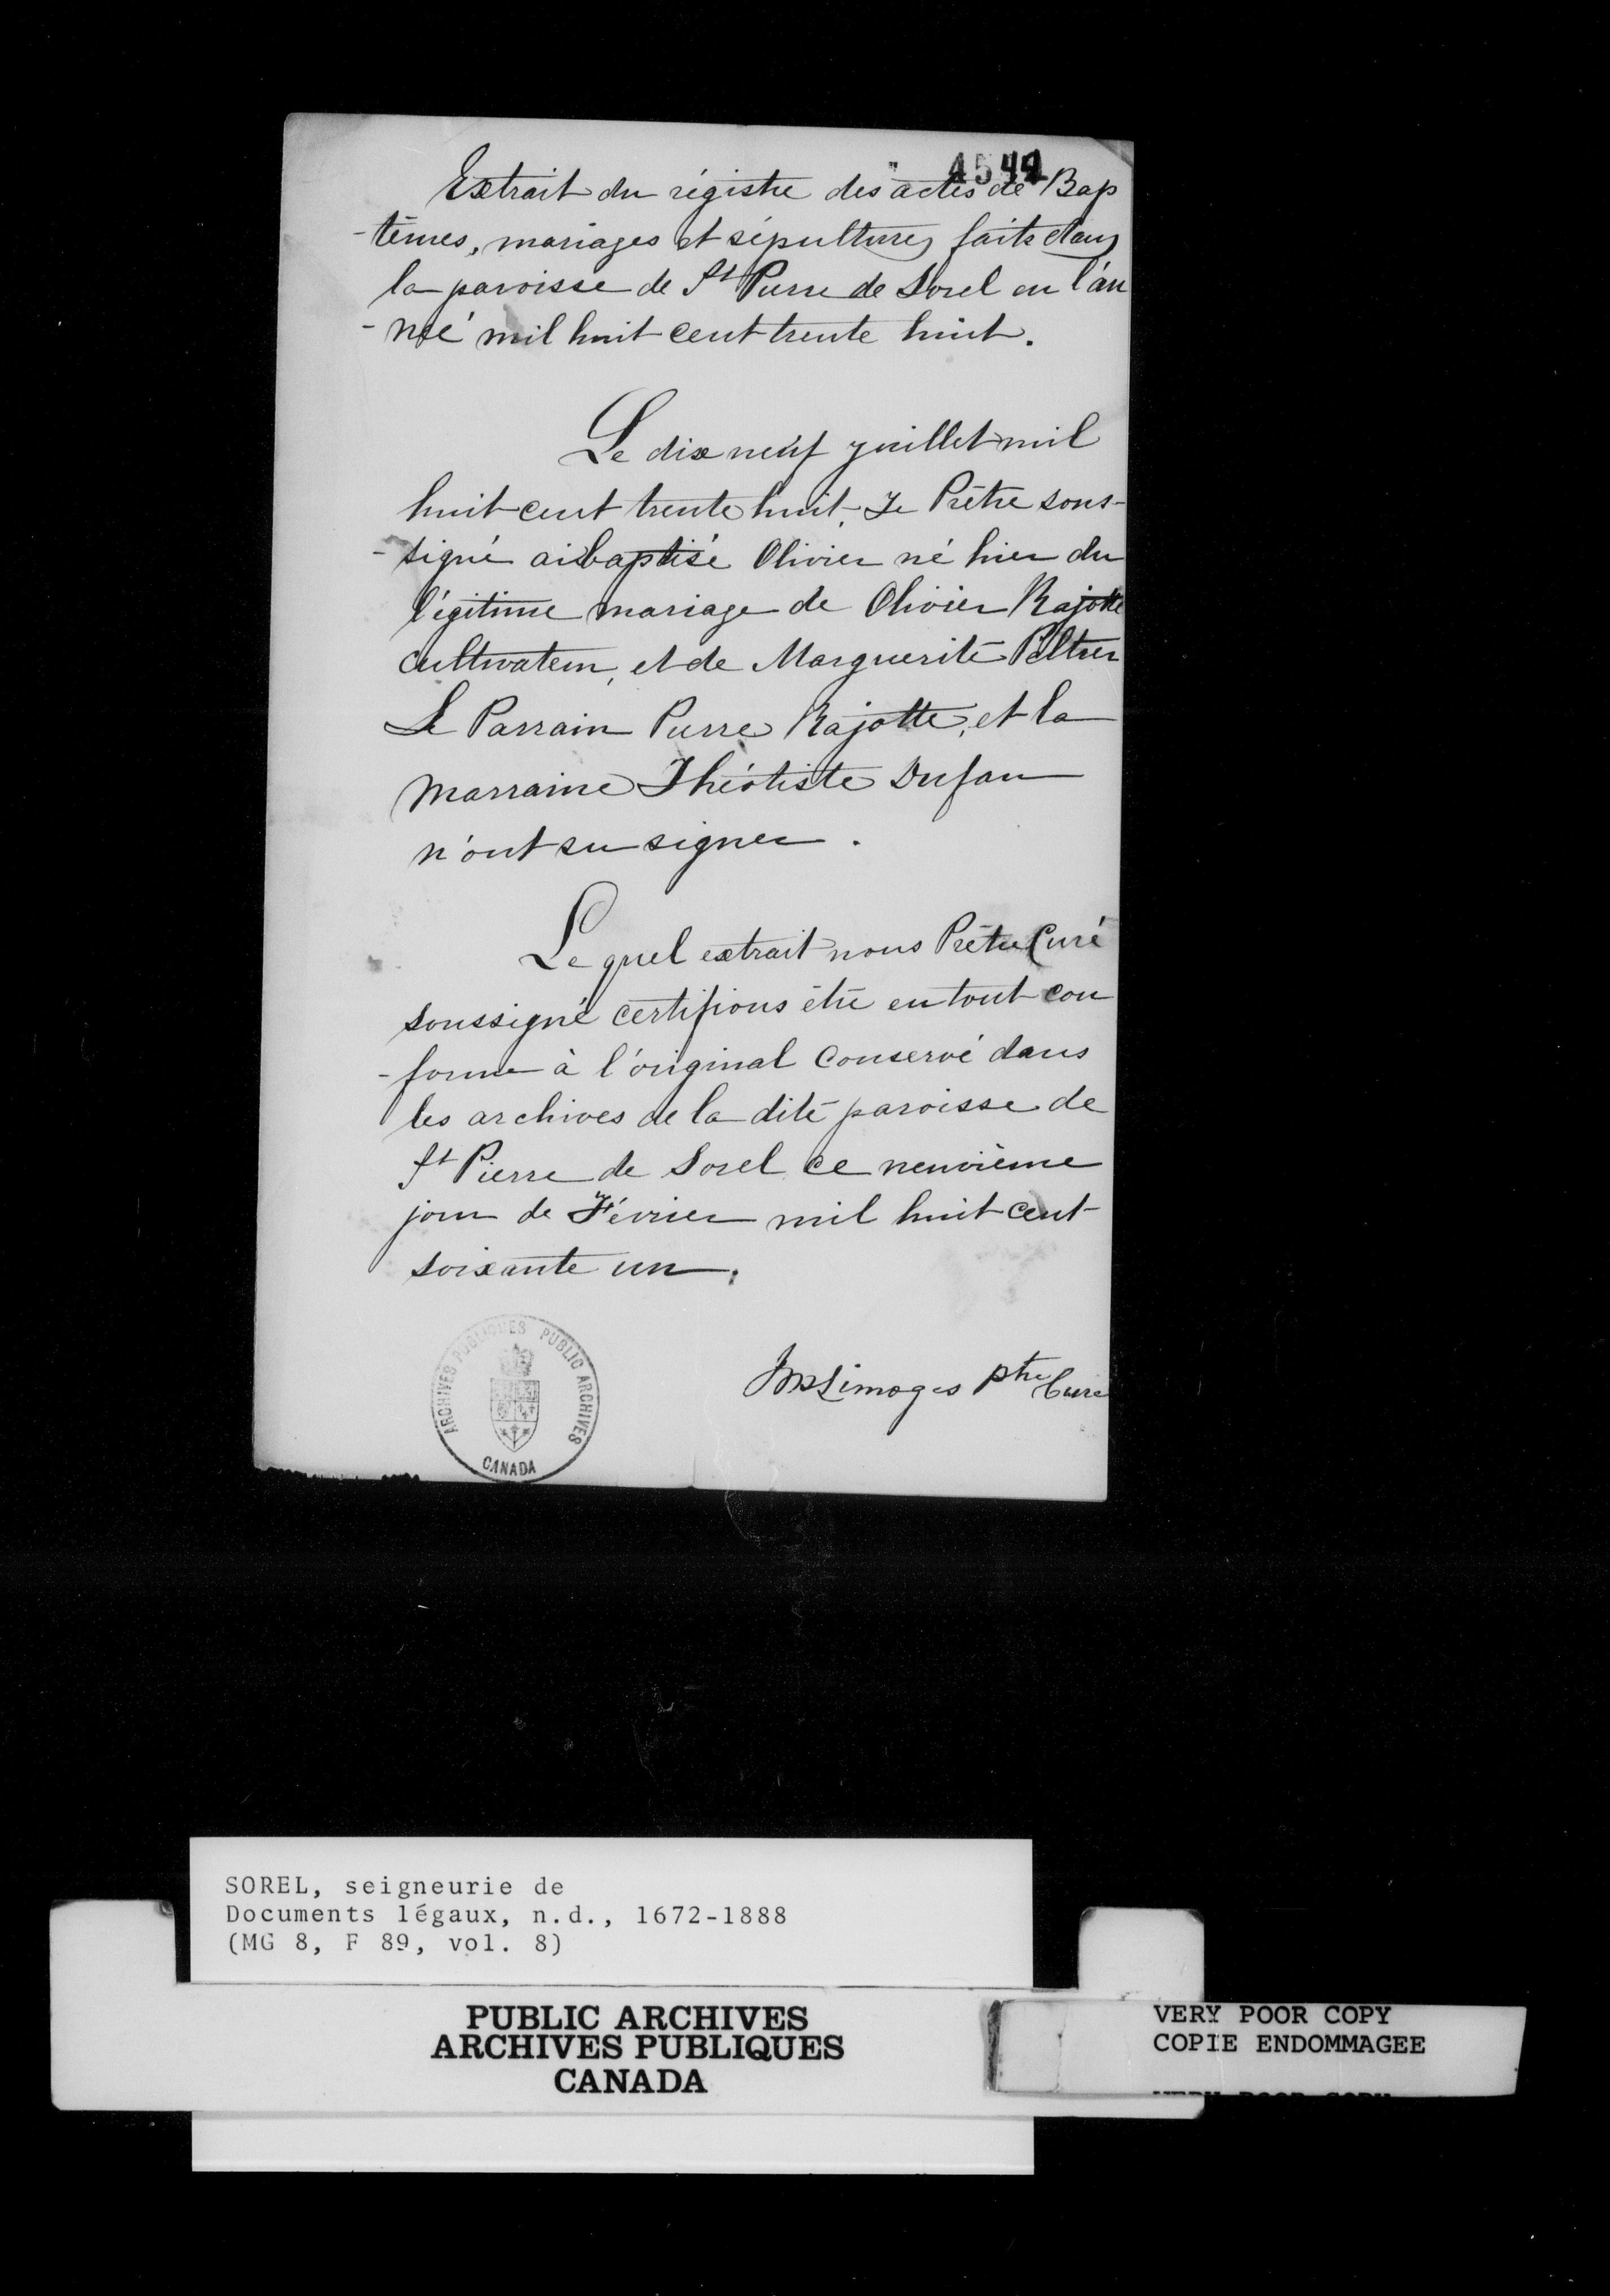 4544
Extrait du régistre des actes de Bap
-têmes, mariages et sépultures faits dans
la paroisse de St Pierre de Sorel en l'an
-neé mil huit cent trente huit.
Le dix neuf juillet mil
huit cent trente huit, Je Prêtre sous-
-signé ai baptisé Olivier né hier du
légitime mariage de Olivier Rajotte
cultivateur, et de Marguerite Peltier
Le Parrain Pierre Rajotte, et la
Marraine Théotiste Dufau
n'ont su signer.
Le quel extrait nous Prêtre Curé
soussigné certifions être en tout con
-forme à l'original conservé dans
les archives de la dite paroisse de
St Pierre de Sorel ce neuvième
jour de Février mil huit cent
soixante un.
Limoges ptre Curé
ARCHIVES PUBLIQUES PUBLIC ARCHIVES
CANADA
SOREL, seigneurie de
Documents légaux, n.d., 1672-1888
(MG 8, F 89, vol. 8)
PUBLIC ARCHIVES
ARCHIVES PUBLIQUES
CANADA
VERY POOR COPY
COPIE ENDOMMAGEE
VERY POOR COPY